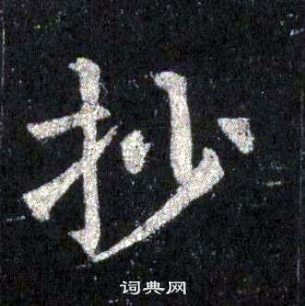 抄
词典网